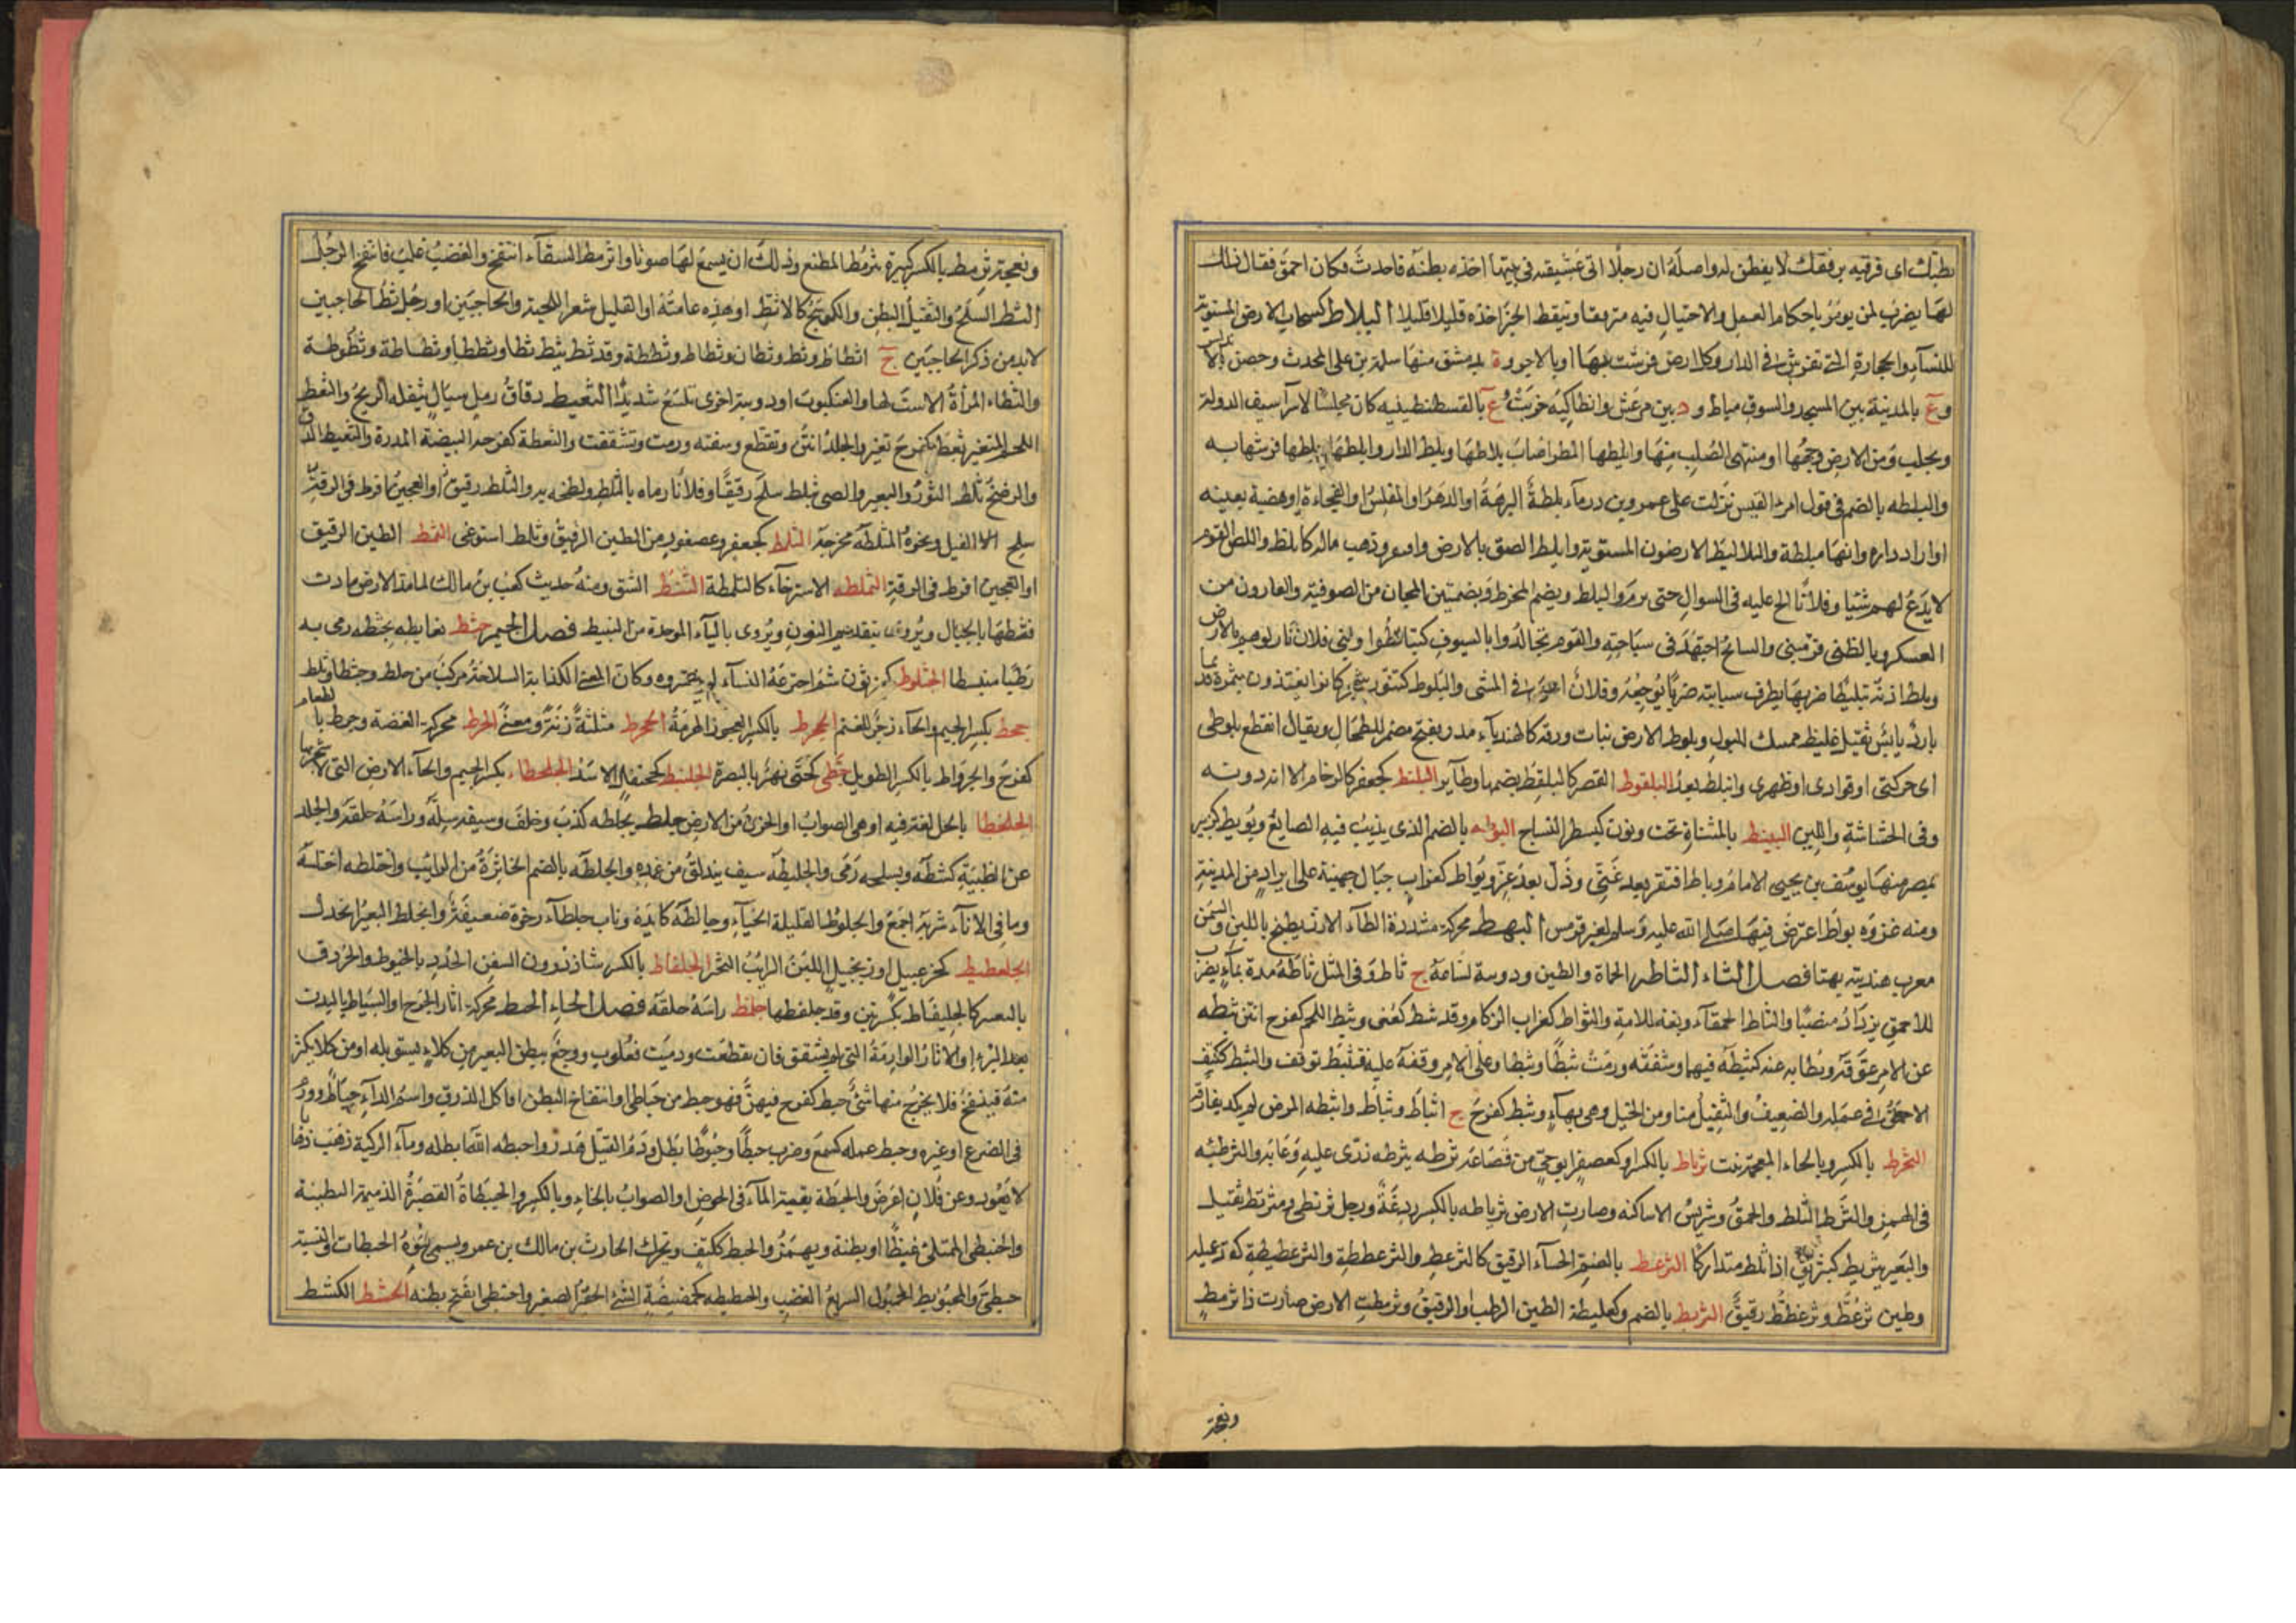 بطنك اى فرقيه برفقك لا يفطن له واصله ان رجلا اتى عشيقه فى بيتها اخذه بطنه فاحدث فكان احمق فقال ذلك
لها يضرب لمن يومر باحكام العمل والاحتيال فيه مترفقا وتبقط الخبز اخذه قليلا قليلا البلاط كسحاب الارض المستوية
الملسآء والحجارة التى تفرش فى الدار وكل ارض فرشت بها او بالاجر وة بدمشق منها سلمة بن على المحدث وحصن بالاندلس
وع بالمدينة بين المسجد والسوق مبلط ود بين مرعش وانطاكيه خربت وع بالقسطنطينيه كان مجلسا لاسرآ سيف الدولة
وبحلب ومن الارض وجهها او منتهى الصلب منها وابلطها المطر اصاب بلاطها وبلط الدار وابلطها وبلطها فرشها به
والبلطه بالضم فى قول امرء القيس نزلت على عمرو بن درمآء بلطة البرهة او الدهر او المفلس او الفجاءة او هضبة بعينه
او اراد داره وانها مبلطة والبلاليط الارضون المستوية وابلط الصق بالارض وافتقر وذهب ماله كابلط واللص القوم
لا يدع لهم شيا وفلانا الح عليه فى السوال حتى برم والبلط ويضم المخرط وبضمتين المجان من الصوفية والفارون من
العسكر وبالطنى فر منى والسابح اجتهد فى سباحته والقوم تجالدوا بالسيوف كتبالطوا وبنى فلان نازلوهم بالارض
وبلط اذنه تبليطا ضربها بطرف سبابته ضربا يوجعه وفلان اعيا فى المشى والبلوط كتنور شجر كانوا يغتذون بثمره قديما
بارد يابس ثقيل غليظ ممسك للبول وبلوط الارض نبات ورقه كالهندبآء مدر مفتح مضمر للطحال ويقال انقطع بلوطى
اى حركتى او فوادى او ظهرى وانبلط بعد البلقوط القصر كالبلقط بضمهما وطآير البلنط كجعفر كالرخام الا انه دونه
وفى الهشاشة واللين البينط بالمثناة تحت ونون كبسطر النساج البوطه بالضم الذى يذيب فيه الصايغ وبويط كزبير
بمصر منها يوسف بن يحيى الامام وباط افتقر بعد غنى وذل بعد عز وبواط كغراب جبال جهينة على ابراد من المدينة
ومنه غزوه بواط اعترض فيها صلى الله عليه وسلم لعير قريش البهط محركة مشددة الطآء الارز يطبخ باللبن والسمن
معرب هنديته بهتا فصل الثاء الثاطه الحماة والطين ودويبة لساعة ج ثاط وفى المثل ثاطة مدت بمآء يضرب
للاحمق يزداد منصبا والثاطا الحمقآء ونعت للامة والثواط كغراب الزكام وقد ثئط كعنى وثبط اللحم كفرح انتن ثبطه
عن الامر عوقه وبطا به عنه كثبطه فيهما وشفته ورمت ثبطا وثبطا وعلى الامر وقفه عليه فتثبط توقف والثبط ككتف
الاحمق فى عمله والضعيف والثقيل منا ومن الخيل وهى بهآء وثبط كفرح ج اثباط وثباط واثبطه المرض لم يكد يفارقه
الثخرط بالكسر وبالخاء المعجمة نبت ثرباط بالكسر او كعصفر ابوحى من قضاعة ثرطه يثرطه زرى عليه وعابه والثرطئه
فى الهمز والثرط الثلط والحمق وشريس الاساكفه وصارت الارض ثرياطه بالكسر ردغة ورجل ثرنطى ومثرنط ثقيل
والبعير يثريط كبثرنق اذا ثلط متداركا الثرعط بالضم الحسآء الرقيق كالثرعط والثرعططة والثرعطيطة كقذعميلة
وطين ثرعط وثرعطط رقيق الثرمط بالضم وكعلبطة الطين الرطب او الرقيق وثرمطت الارض صارت ذا ثرمط
ونعجة
ونعجة ثرمط بالكسر كبيرة ثرمط المطنع وذلك ان يسمع لها صوتا واثرمط السقآء انتفخ والغضب غلب فانتفخ الرجل
الثط السلح والثقيل البطن والكوسج كالاثط او هذه عامية او القليل شعر اللحية والحاجبين او رجل ثط الحاجبين
لا بد من ذكر الحاجبين ج اثطاط وثط وثطان وثطاط وثططة وقد ثط يثط ثطا وثططا وثطاطة وثطوطة
والثطاء المرأة لا است لها والعنكبوت او دويبة اخرى تلسع شديدا الثعيط دقاق رمل سيال تنقله الريح والثعط
اللحم المتغير ثعط كفرح تغير والجلد انتن وتقطع وشفته ورمت وتشققت والثعطة كفرحه البيضة المذرة والتثعيط الدق
والرضخ ثلط الثور والبعير والصبى يثلط سلح رقيقا وفلانا رماه بالثلط ولطخه به والثلط رقيق او العجين افرط فى الرقة
سلح الفيل ونحوه المثلطه مخرجه الثلمط كجعفر وعصفور من الطين الرقيق وثلمط استرخى الثمط الطين الرقيق
او العجين افرط فى الرقة الثملطه الاسترخآء كالثلمطة الثنط الشق ومنه حديث كعب بن مالك لما مد الارض مادت
فثنطها بالجبال ويروى بتقديم النون ويروى بالبآء الموحدة من التثبيط فصل الجيم جثط بغايطه يجثطه رمى به
رطبا منبسطا الجثلوط كبرزون شتم اخترعه النسآء لم يفسروه وكان المعنى الكذابة السلاحة مركب من جلط وجثط او ثلط
جحط بكسر الجيم والحآء زجر للغنم الجحرط بالكسر العجوز الهرمة الجخرط مثلثة زنة ومعنى الجرط محركة الغصة وجرط بالطعام
كفرح والجرواط بالكسر الطويل جطى كحتى نهر بالبصرة الجلنبط كجحنفل الاسد الجلحطاء بكسر الجيم والحآء الارض التى لا شجر بها
الجلخطا بالخآ لغة فيه او هى الصواب او الحزن من الارض جلط يجلطه كذب وحلف وسيفه سله ورأسه حلقه والجلد
عن الظبية كشطه وبسلحه رمى والجليطه سيف يندلق من غمده والجلطه بالضم الخاثرة من الرايب واجتلطه اختلسه
وما فى الانآء شربه اجمع والجلوط القليلة الحيآء وجالطه كايده وناب جلطآء رخوة ضعيفة وانجلط البعير انجدل
الجلعطيط كخزعبيل او زنجبيل اللبن الرايب الثخر الجلفاط بالكسر شاذ دروز السفن الجدد بالخيوط والخرق
بالتعبير كالجلنفاط بكسرتين وقد جلفطها جلمط راسه حلقه فصل الحاء الحبط محركة اثار الجرح او السياط بالبدن
بعد البرء او الاثار الوارمة التى لم تشقق فان تقطعت ودميت فعلوب ووجع ببطن البعير من كلاء يستوبله او من كلا يكثر
منه فينتفخ فلا يخرج منها شئ حبط كفرح فيهن فهو حبط من حباطى او انتفاخ البطن اذا اكل الذرق واسم الدآء حباط وورم
فى الضرع او غيره وحبط عمله كسمع وضرب حبطا وحبوطا بطل ودم القتيل هدر واحبطه الله ابطله ومآء الركية ذهب ذهابا
لا يعود وعن فلان اعرض والحبطة بقية المآء فى الحوض او الصواب بالخاء وبالكسر والحبنطاة القصيرة الذميمة البطينة
والحبنطى الممتلئ غيظا او بطنة ويهمز والحبط ككتف ويحرك الحارث بن مالك بن عمرو ويسمى بنوه الحبطات والنسبة
حبطى والمحبوبط الجهول السريع الغضب والحبطيطه كحمضيضة الشئ الحقير الصغير واحبنطى انتفخ بطنه الحشط الكشط